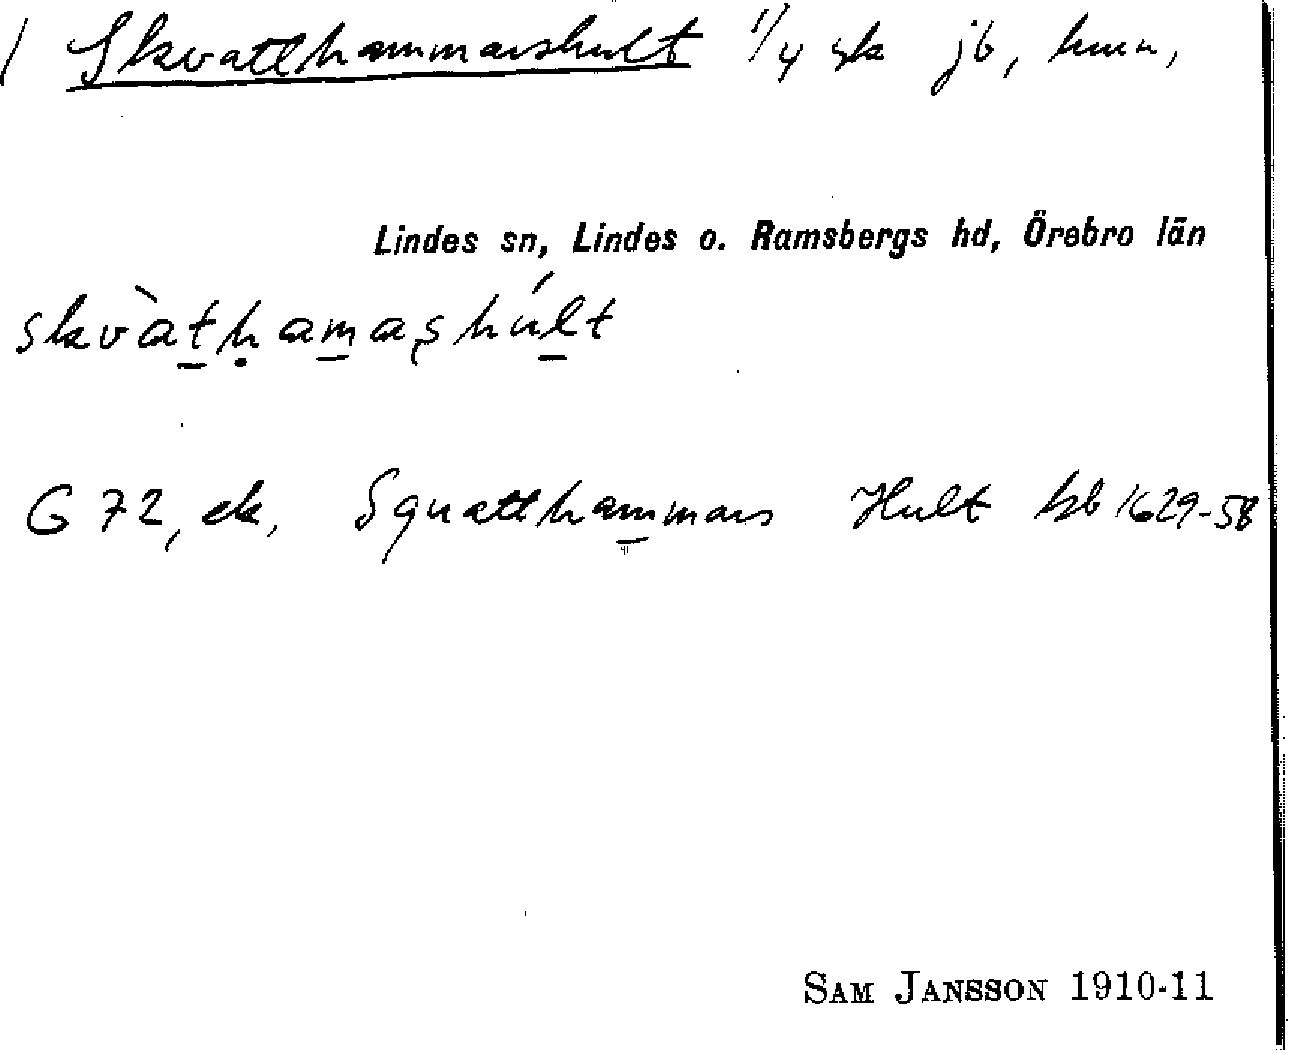 Skvatthammarshult 1/4 sk jb, hmn,
Lindes sn, Lindes o. Ramsbergs hd, Örebro län
skvàt̠ḥam̠aʂhúl̠t
G 72, ek, Squatthammars Hult kb 1629-58
SAM JANSSON 1910-11